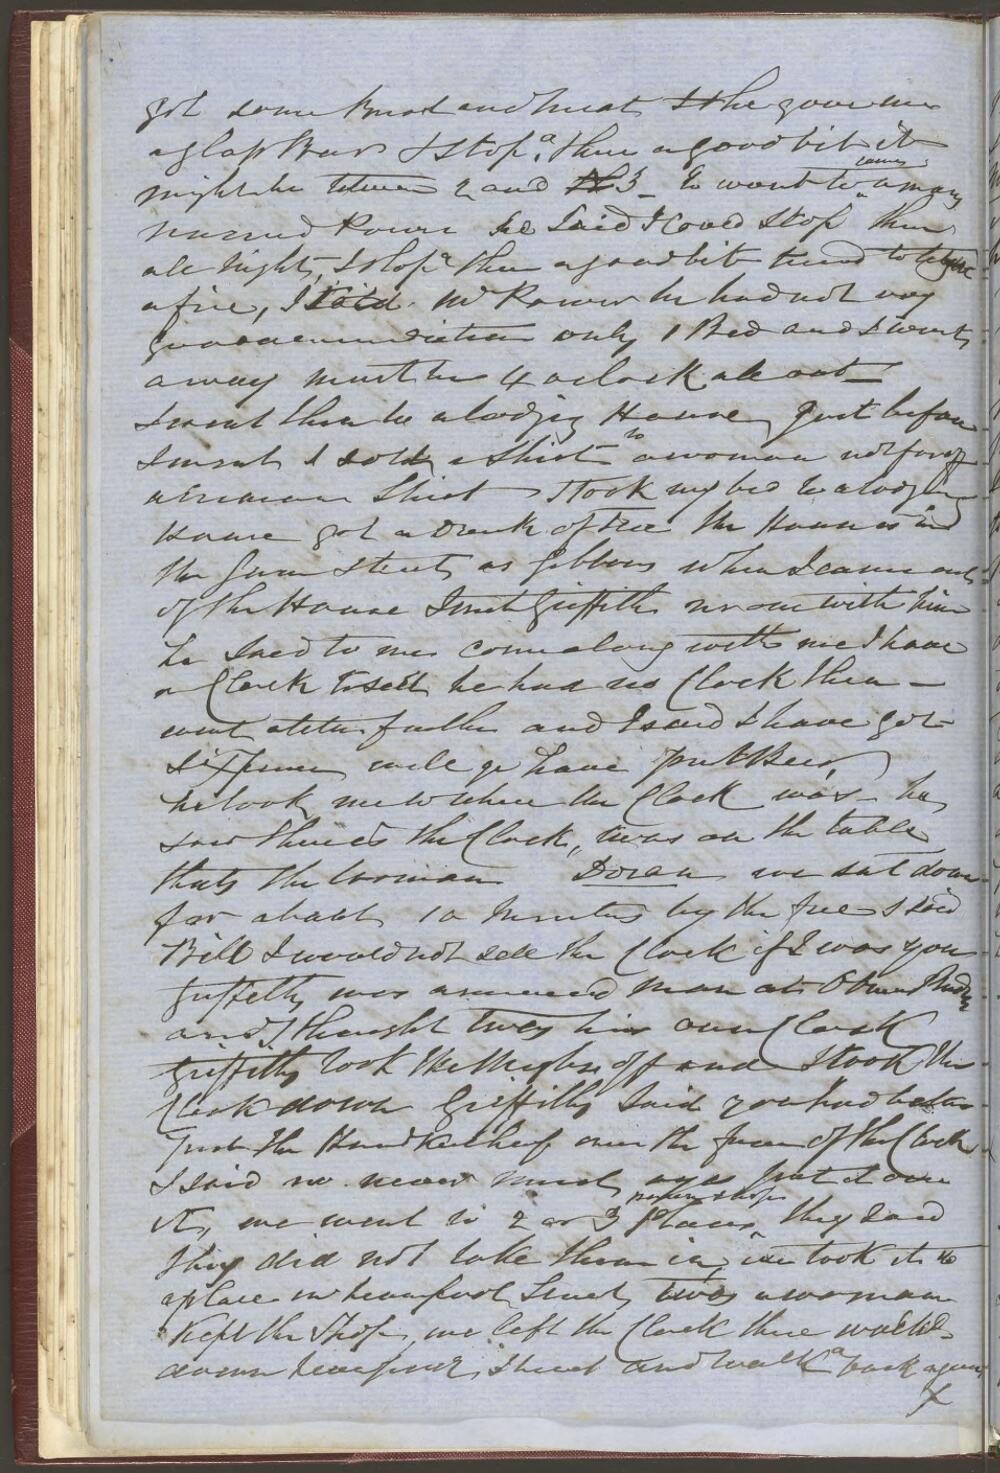 got some Bread and meat & he gave me
a glass Beer & I stopd. there a good bit it
might be between 2 and 3 – I went to a man
named Power he said I could stop there
all night, I stopd there a good bit
a fire, I told Mr Power he had not any
good accommodation only 1 Bed and I went
away must be 4 oclock about –
I went then to a lodging House, just before
I went I sold a Shirt to a woman not far off
a Shirt I took my bed to a lodging
House got a Drink of tea the House is in
the same Street as Gibbons when I came out
of the House I met Griffiths no one with him
he said to me come along with me I have
a Clock to sell he had no Clock then –
went a little further and I said I have got
Sixpence will go have Pot Beer,
he took me to where the Clock was – he
said there is the Clock, twas on the table
thats the woman Doran we sat down
for about 10 minutes by the fire I said
Bill I would not sell the Clock if I was you
Griffiths was a married man at
and I thought twas his own Clock
Griffiths took the Weights off and I took the
Clock down Griffiths said you had better
put the Handkerchief over the face of the Clock
I said no never mind, put it over
it, we went to 2 or 3 pawn shops places, they said
they did not take them in, we took it to
a place in Liverpool Street, twas a woman
Kept the Shop, we left the Clock there walkd
down Liverpool Street and walkd back again
X